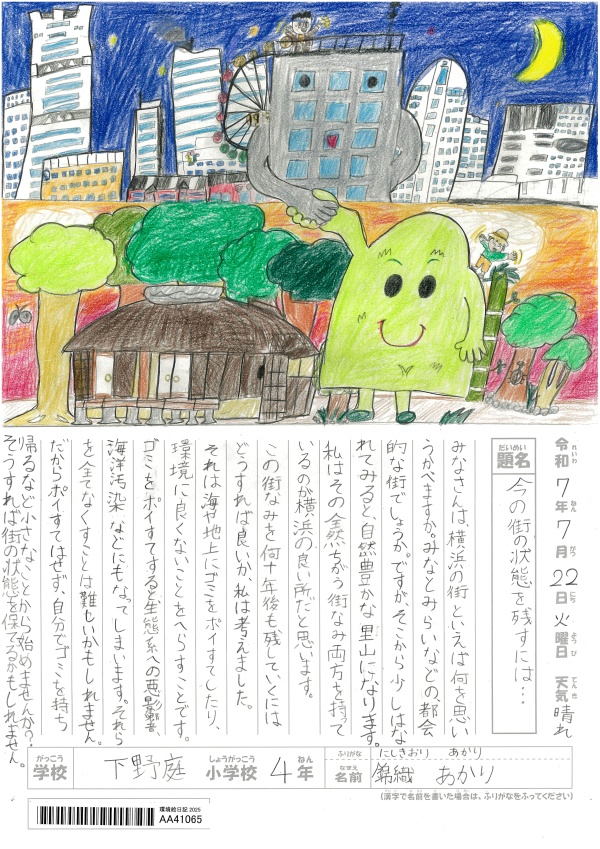 令和7年7月22日火曜日 天気 晴れ
れいわ ねん がつ にち ようび てんき
題名 今の街の状態を残すには…
だいめい
みなさんは、横浜の街といえば何を思い
うかべますか。みなとみらいなどの、都会
的な街でしょうか。ですが、そこから少しはな
れてみると、自然豊かな里山になります。
私はその全然ちがう街なみ両方を持って
いるのが横浜の良い所だと思います。
この街なみを何十年後も残していくには
どうすれば良いか、私は考えました。
それは、海や地上にゴミをポイすてしたり、
環境に良くないことをへらすことです。
ゴミをポイすてすると生態系への悪影響、
海洋汚染などにもなってしまいます。それら
を全てなくすことは難しいかもしれません。
だからポイすてはせず、自分でゴミを持ち
帰るなど小さなことから始めませんか？
そうすれば街の状態を保てるかもしれません。
がっこう しょうがっこう ねん
学校 下野庭 小学校 4年
ふりがな にしきおり あかり
なまえ
名前 錦織 あかり
(漢字で名前を書いた場合は、ふりがなをふってください)
環境絵日記 2025
AA41065